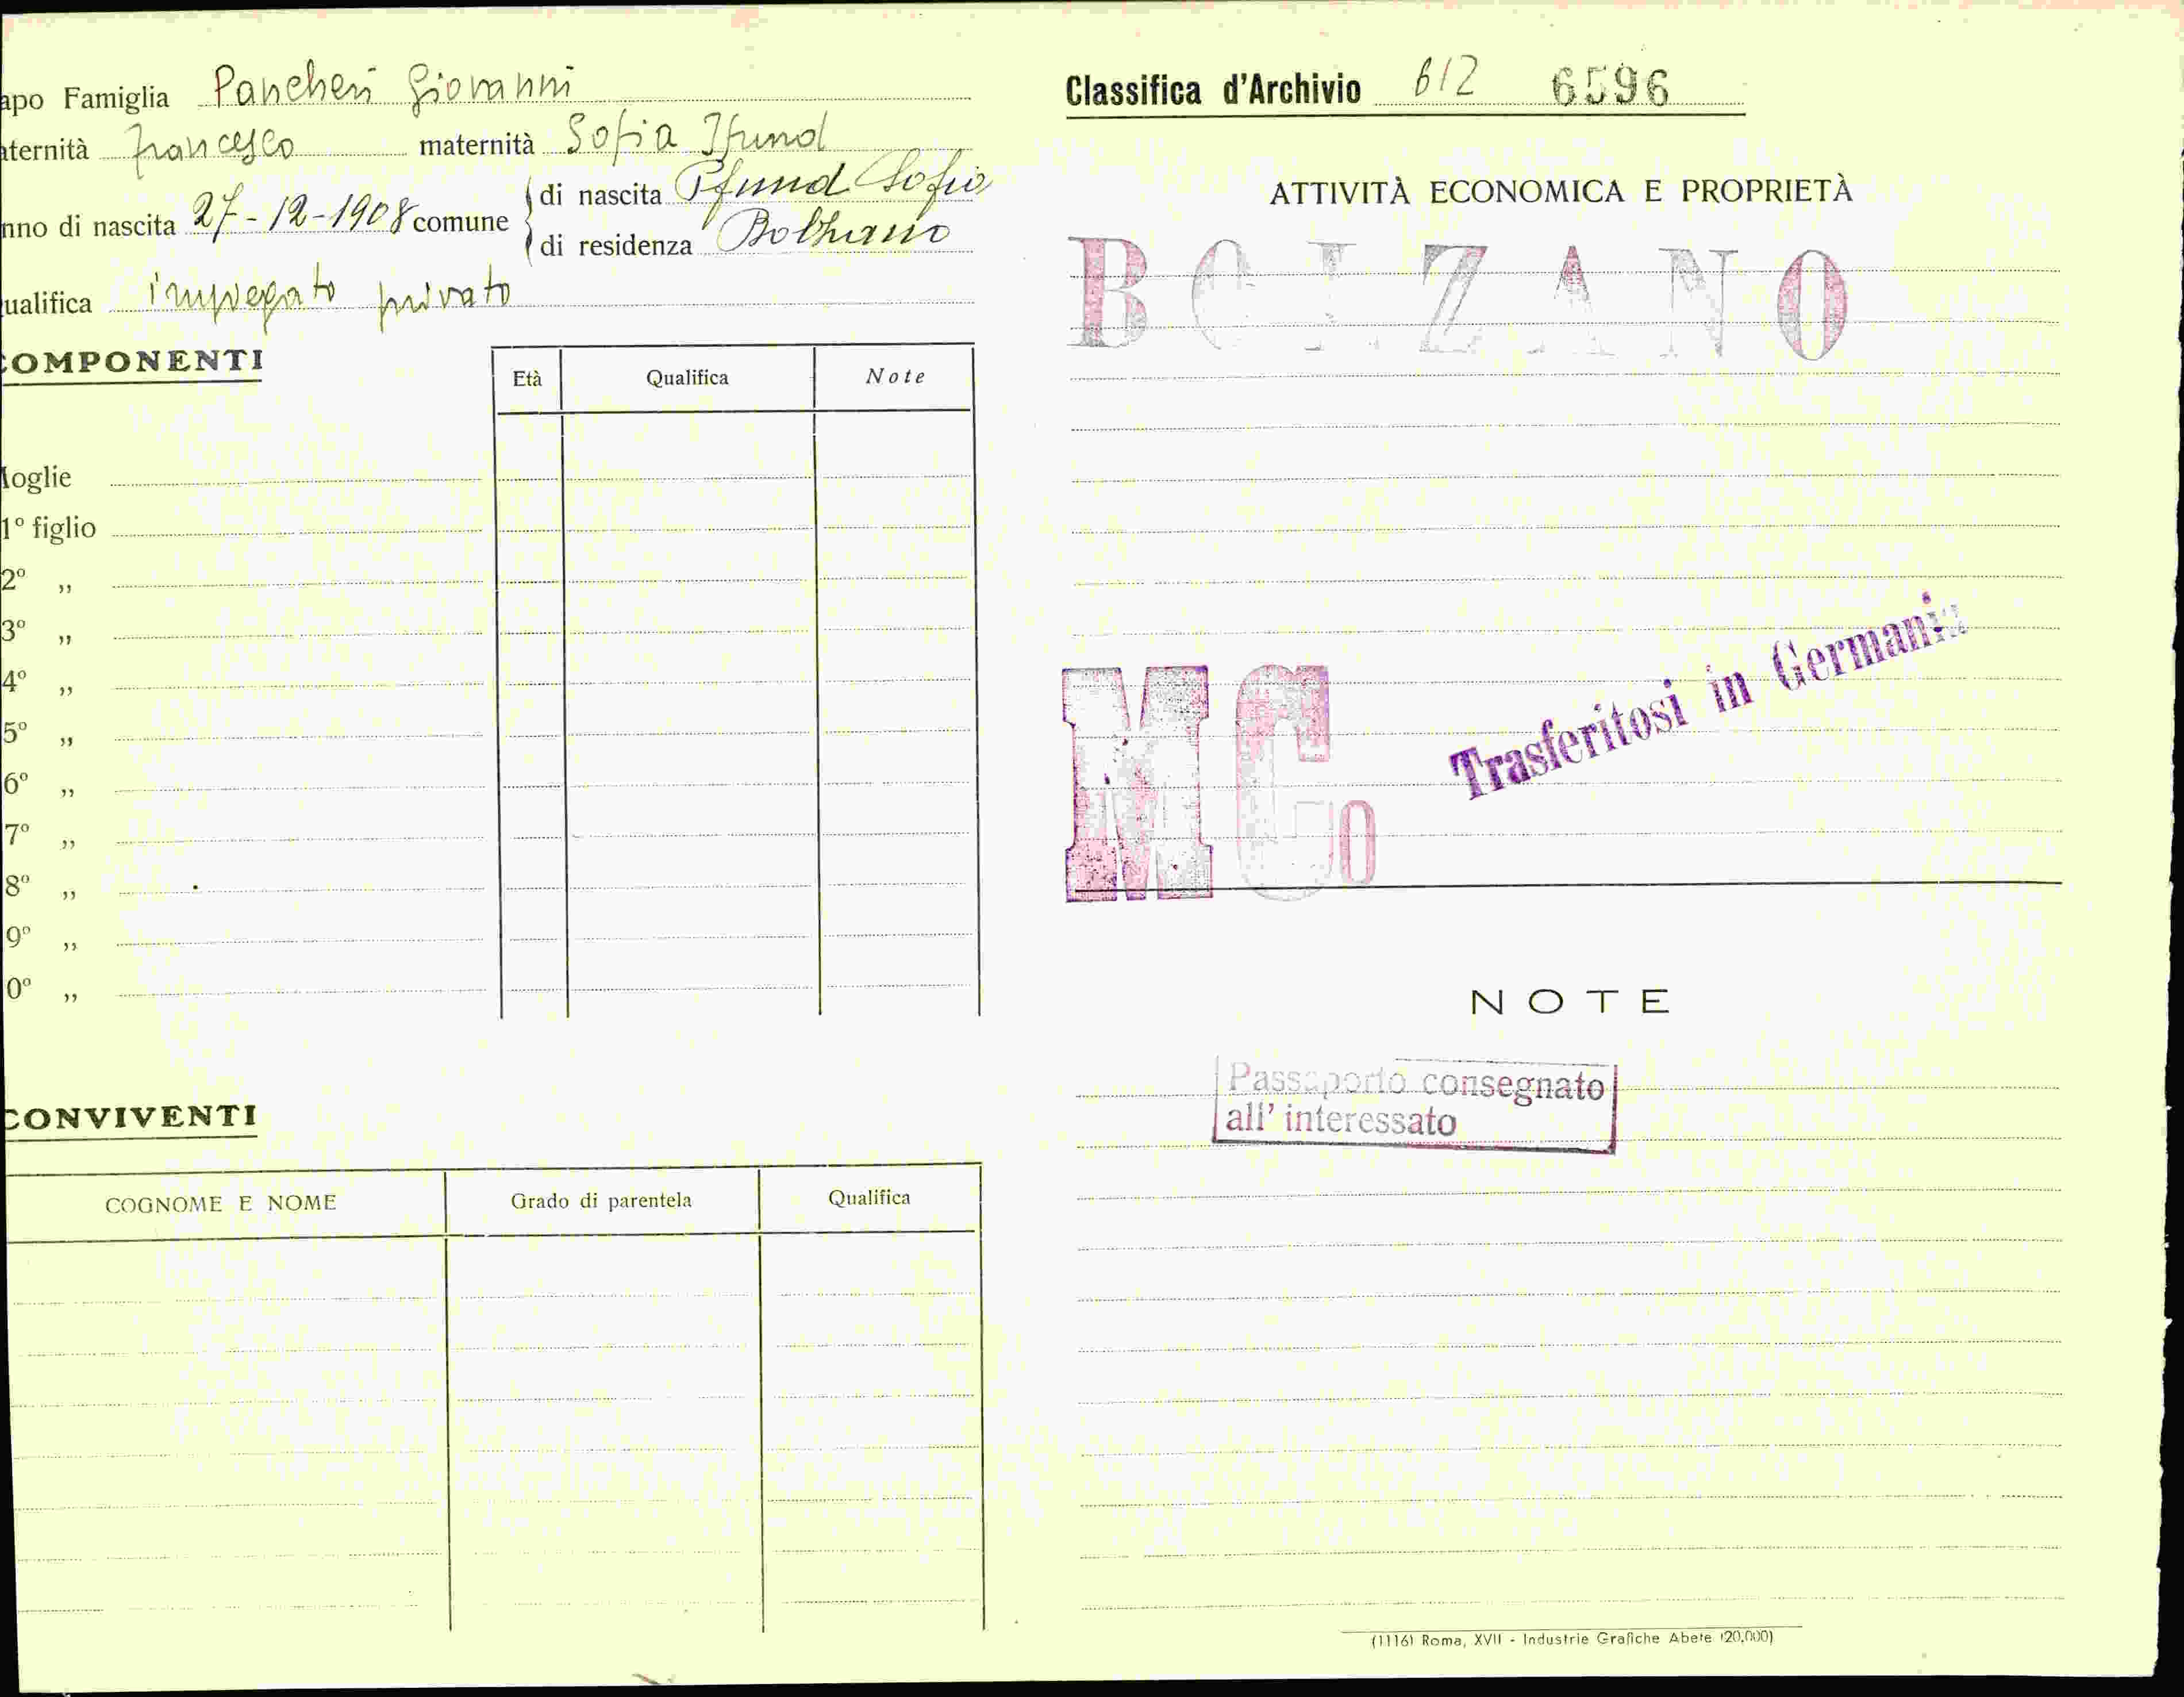 apo Famiglia Pancheri Giovanni
aternità Francesco maternità Sofia Pfund
nno di nascita 27-12-1908 comune
di nascita Pfund Sofia
di residenza Bolzano
ualifica impiegato privato
COMPONENTI
Età Qualifica Note
Moglie
1º figlio
2º „
3º „
4º „
5º „
6º „
7º „
8º „
9º „
0º „
CONVIVENTI
COGNOME E NOME Grado di parentela Qualifica
Classifica d'Archivio 612 6596
ATTIVITÀ ECONOMICA E PROPRIETÀ
BOLZANO
Trasferitosi in Germania
MCo
NOTE
Passaporto consegnato
all' interessato
(1116) Roma, XVII - Industrie Grafiche Abete (20,000)